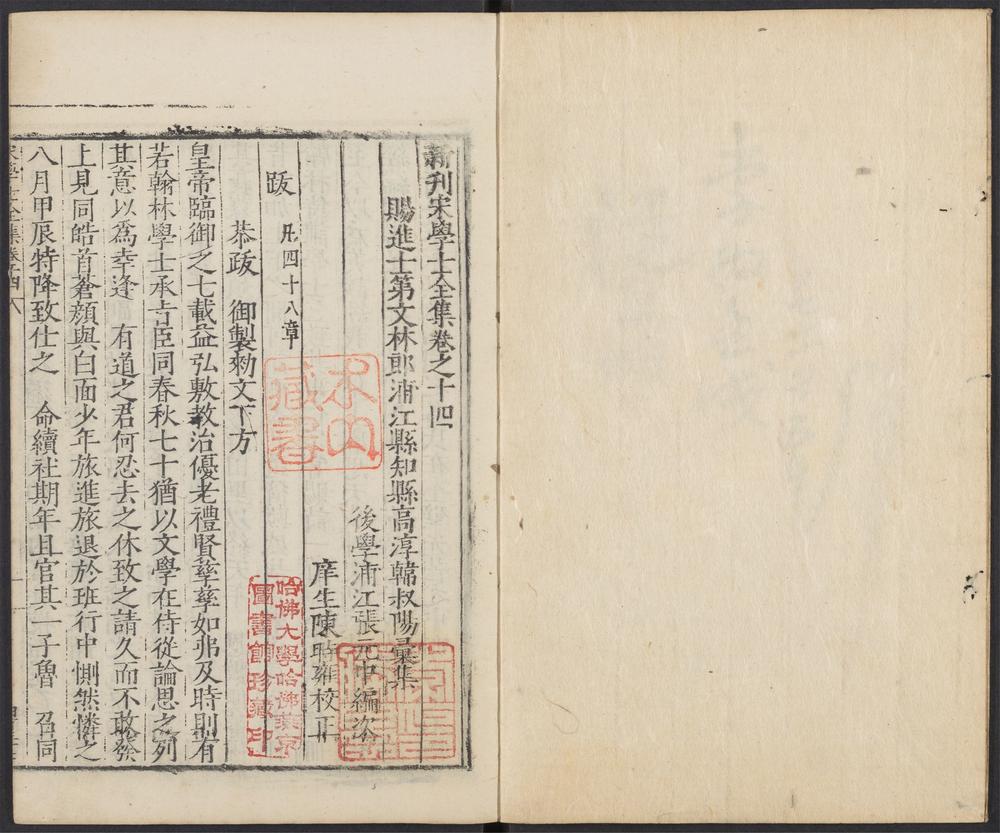 新刊宋學士全集卷之十四
賜進士第文林郎浦江縣知縣高淳韓叔陽彙集
後學浦江張元中編次
庠生陳時雍校正
跋 凡四十八章
恭跋 御製勑文下方
皇帝臨御之七載益弘敷敎治優老禮賢孳孳如弗及時則有
若翰林學士承㫖臣同春秋七十猶以文學在侍從論思之列
其意以爲幸逢 有道之君何忍去之休致之請久而不敢發
上見同皓首蒼顔與白面少年旅進旅退於班行中惻然憐之
八月甲辰特降致仕之 命續社期年且官其一子魯 召同
宋學士全集卷十四
木山藏書
哈佛大學哈佛燕京圖書館珍藏印